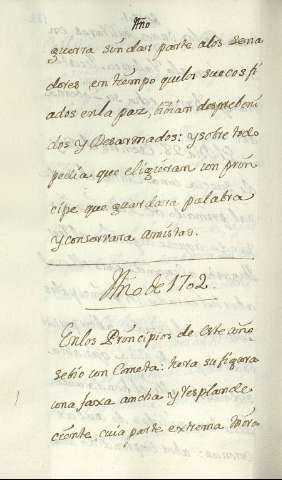 Año
guerra sin dar parte alos Sena
dores en tiempo que los suecos fi
ados en la paz, vivian despreveni
dos y Desarmados: y sobre todo
pedia que eligieran un prin
cipe que guardara palabra
y conservara amistad.
Año de 1702.
En los Principios de este año
se bio un Cometa: hera su figura
una faxa ancha y Resplande
ciente, cuia parte extrema mira